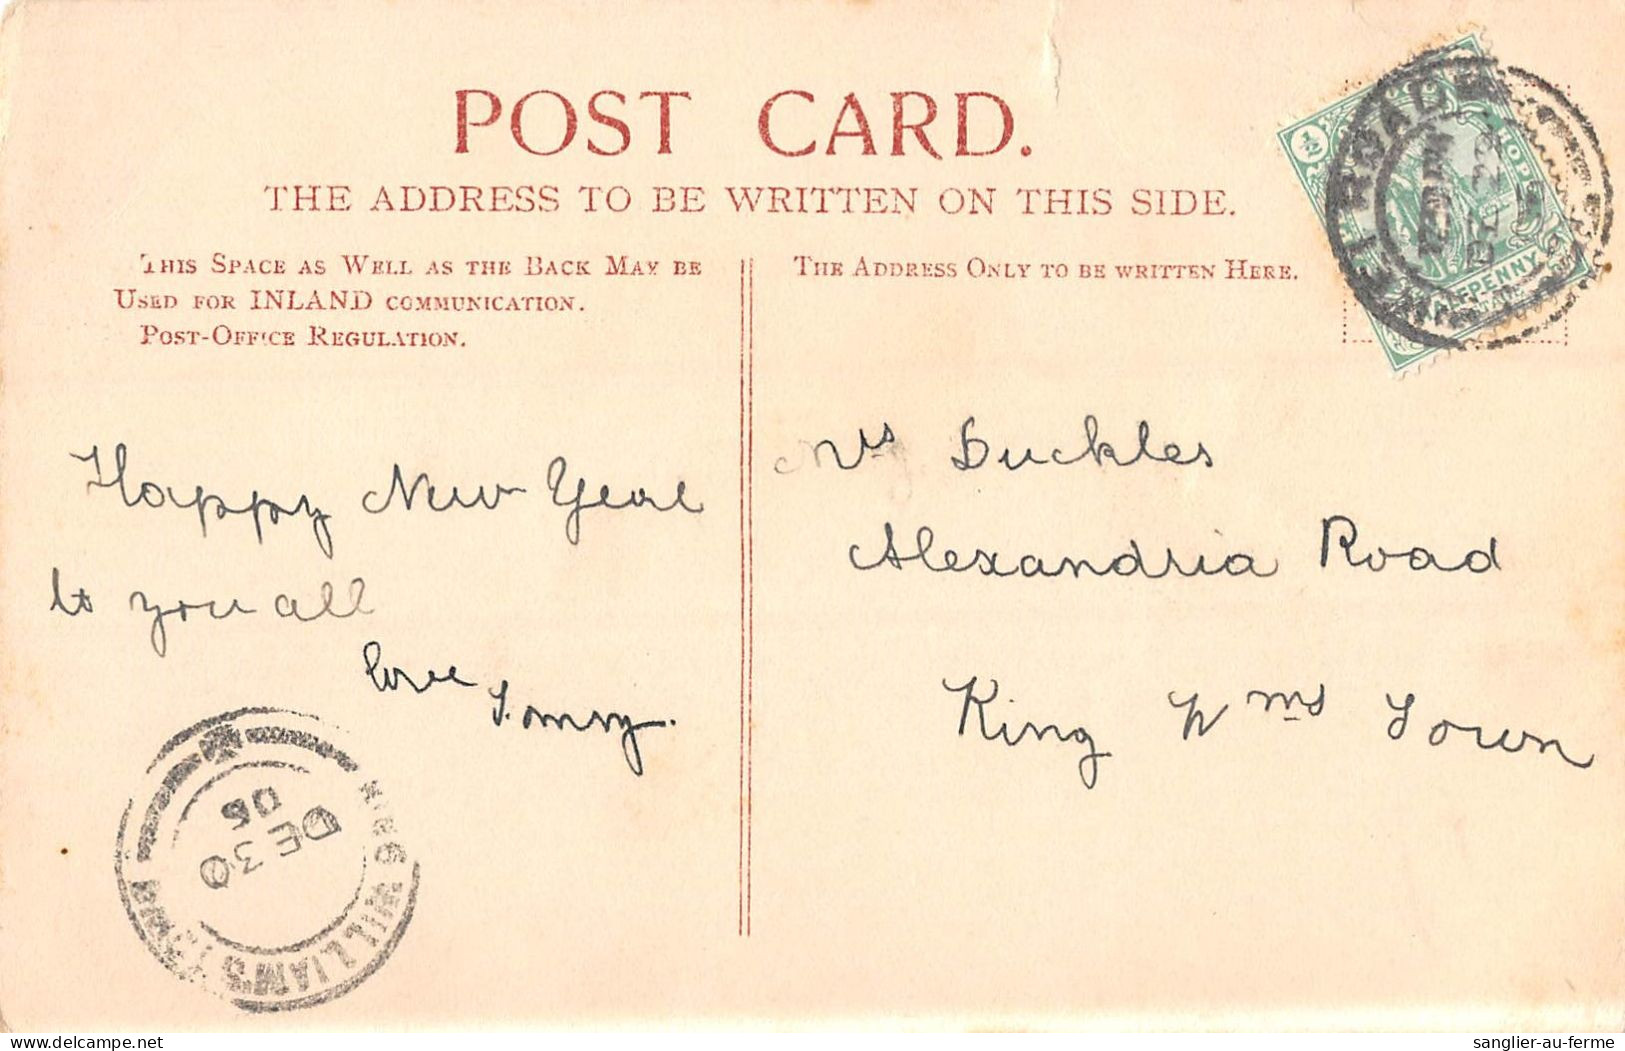 POST CARD.
THE ADDRESS TO BE WRITTEN ON THIS SIDE.
THIS SPACE AS WELL AS THE BACK MAY BE
USED FOR INLAND COMMUNICATION.
POST-OFFICE REGULATION.
THE ADDRESS ONLY TO BE WRITTEN HERE.
½
HALFPENNY
Happy New Year
to you all
love Tommy.
Mrs Duckles
Alexandria Road
King Wms Town
KING WILLIAM'S TOWN
DE 30
05
sanglier-au-ferme